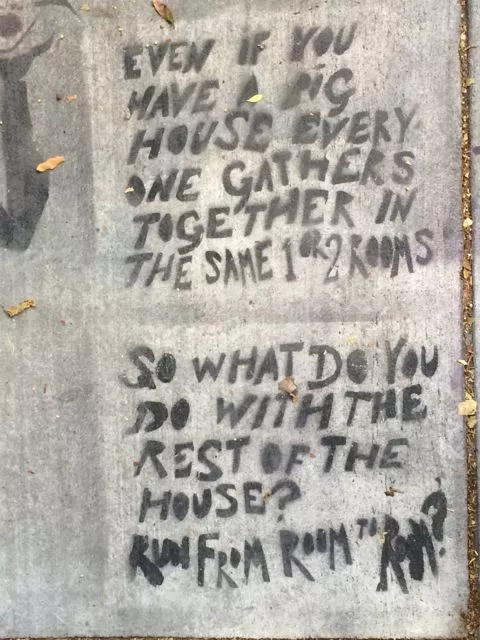 EVEN IF YOU
HAVE A BIG
HOUSE EVERY
ONE GATHERS
TOGETHER IN
THE SAME 1 OR 2 ROOMS
SO WHAT DO YOU
DO WITH THE
REST OF THE
HOUSE?
RUN FROM ROOM TO ROOM?